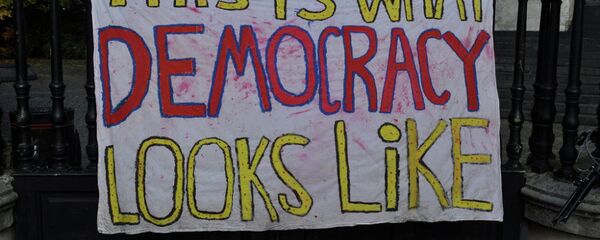 THIS IS WHAT
DEMOCRACY
LOOKS LiKE